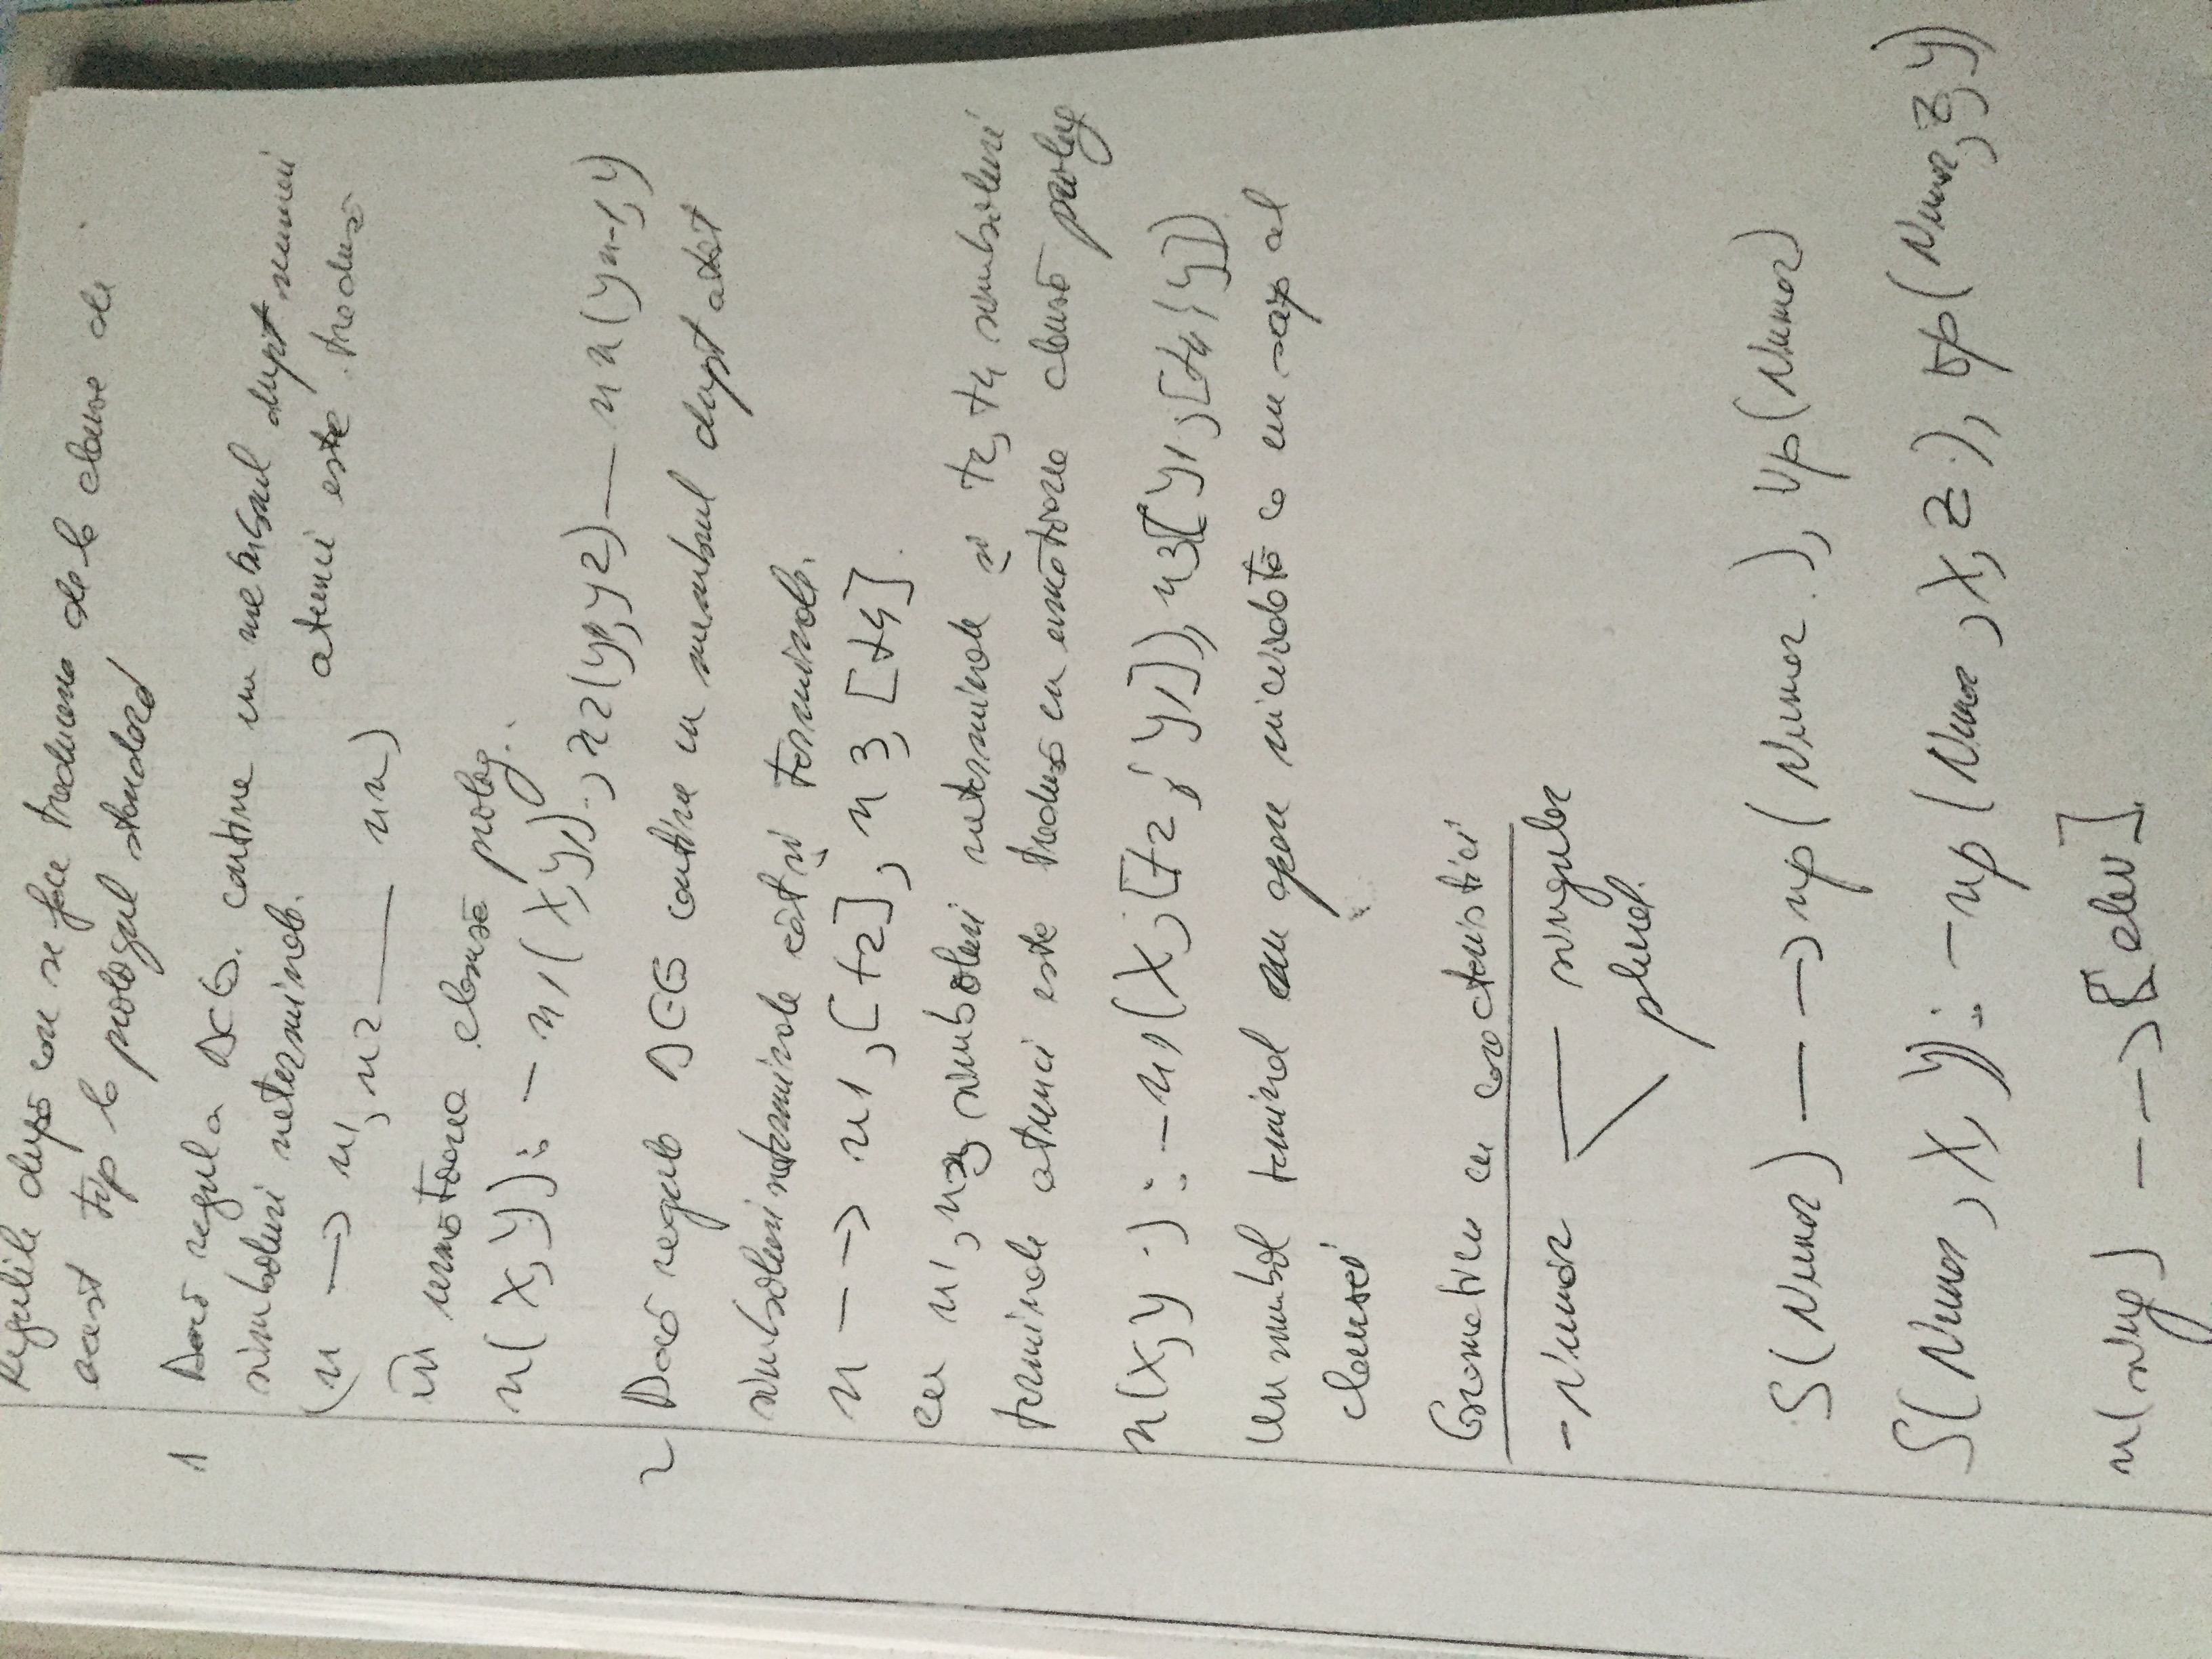 Regulile după care se face traducerea de la clauze de
acest tip la prologul standard
1 Dacă regula DCG. contine in membrul drept numai
simboluri neterminale.
atunci este tradusă
(n —> n1, n2 ___ nn)
în următoarea clauză prolog..
n(X,Y): - n1(X,Y1)., n2(Y1,Y2) — nn(Yn-1,Y)
2 Dacă regula DCG contine in membrul drept atât
simboluri neterminale cât și terminale.
n --> n1,[t2], n3, [t4].
cu n1, n3 simboluri neterminale și t2, t4 simboluri
terminale atunci este tradusă in următoarea clauză prolog
n(X,Y) :- n1(X,[t2 ¦ Y1]), n3(Y1,[t4 ¦ Y])
Un simbol terminal nu apare niciodată ca un scop al
clauzei
Gramatici cu caracteristici
- Număr — singular
plural.
S(Numar) — —> np(Numar.), Vp(Numar)
S(Numar, X, Y): - np(Numar, X, Z.), vp(Numar, Z, Y)
n(sing) - -> [elev].